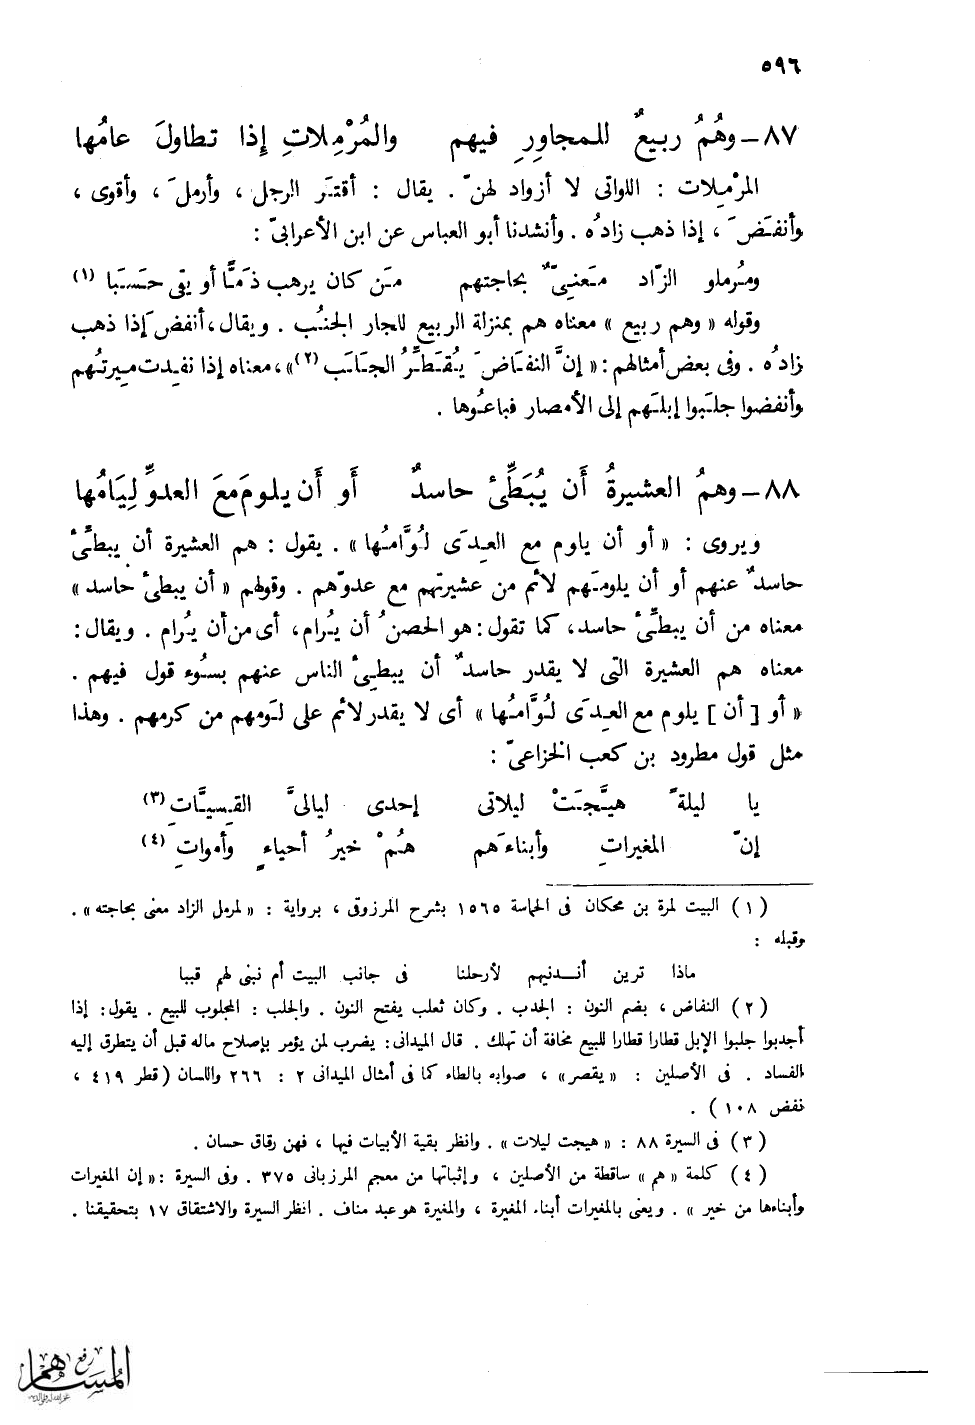 ٥٩٦
٨٧ – وهُمُ ربيعٌ للمجاوِرِ فيهم والمُرْمِلاتِ إِذا تطاولَ عامُها
المرْمِلات : اللواتى لا أزواد لهنّ . يقال : أقتَر الرجل ، وأرملَ ، وأقوى ،
وأنفَضَ ، إذا ذهب زادُه . وأنشدنا أبو العباس عن ابن الأعرابىّ :
ومُرملو الزّاد مَعنىٌّ بحاجتهم مَن كان يرهب ذمًّا أو يقى حَسَبَا (١)
وقوله « وهم ربيع » معناه هم بمنزلة الربيع للجار الجنُب . ويقال ، أنفضَ إذا ذهب
زادُه . وفى بعض أمثالهم : « إنَّ النفاضَ يُقَطِّرُ الجلَب (٢) » ، معناه إذا نفِدت مِيرتُهم
وأنفضوا جلَبوا إبلَهم إلى الأمصار فباعُوها .
٨٨ – وهمُ العشيرةُ أَن يُبَطِّئَ حاسدٌ أَو أَن يلومَ معَ العدوِّ لِيَامُها
ويروى : « أو أن ياوم مع العِدَى لُوَّامُها » . يقول : هم العشيرة أن يبطِّئَ
حاسدٌ عنهم أو أن يلومَهم لائم من عشيرتهم مع عدوّهم . وقولهم « أن يبطئ حاسد »
معناه من أن يبطِّئ حاسد ، كما تقول : هو الحصنُ أن يُرام ، أى من أن يُرام . ويقال :
معناه هم العشيرة التى لا يقدر حاسدٌ أن يبطِئَ الناس عنهم بسُوء قول فيهم .
« أو [ أن ] يلوم مع العِدَى لُوَّامُها » أى لا يقدر لائم على لَومهم من كرمهم . وهذا
مثل قول مطرود بن كعب الخزاعىّ :
يا ليلةً هيَّجَتْ ليلاتى إحدى ليالىَّ القَسِيَّاتِ (٣)
إنّ المغيراتِ وأبناءَهم هُمْ خيرُ أحياءٍ وأمواتِ (٤)
( ١ ) البيت لمرة بن محكان فى الحماسة ١٥٦٥ بشرح المرزوقى ، برواية : « لمرمل الزاد معنى بحاجته » .
وقبله :
ماذا ترين أندنيهم لأرحلنا فى جانب البيت أم نبنى لهم قببا
( ٢ ) النفاض ، بضم النون : الجدب . وكان ثعلب يفتح النون . والجلب : المجلوب للبيع . يقول : إذا
أجدبوا جلبوا الإبل قطارا قطارا للبيع مخافة أن تهلك . قال الميدانى : يضرب لمن يؤمر بإصلاح ماله قبل أن يتطرق إليه
الفساد . فى الأصلين : « يقصر » ، صوابه بالطاء كما فى أمثال الميدانى ٢ : ٢٦٦ واللسان ( قطر ٤١٩ ،
نفض ١٠٨ ) .
( ٣ ) فى السيرة ٨٨ : « هيجت ليلات » . وانظر بقية الأبيات فيها ، فهن رقاق حسان .
( ٤ ) كلمة « هم » ساقطة من الأصلين ، وإثباتها من معجم المرزبانى ٣٧٥ . وفى السيرة : « إن المغيرات
وأبناءها من خير » . ويعنى بالمغيرات أبناء المغيرة ، والمغيرة هو عبد مناف . انظر السيرة والاشتقاق ١٧ بتحقيقنا .